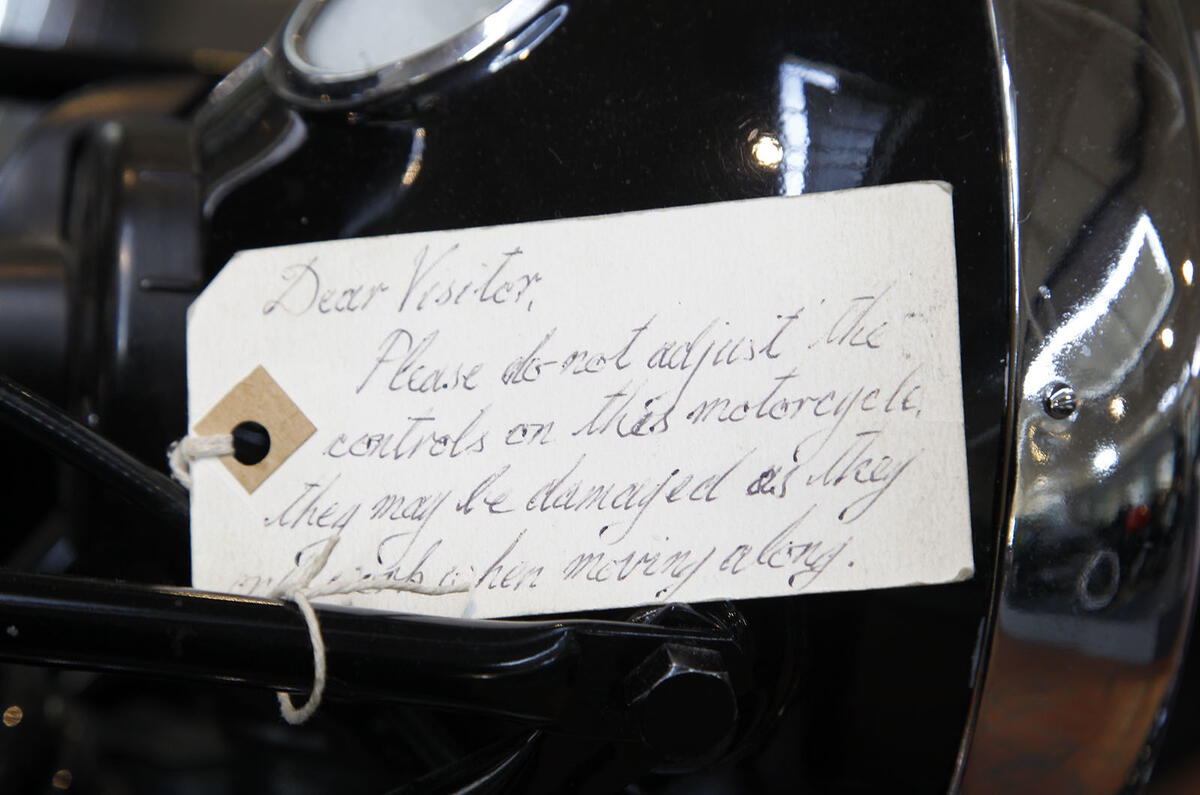 Dear Visitor,
Please do-not adjust the
controls on this motorcycle,
they may be damaged as they
only work when moving along.